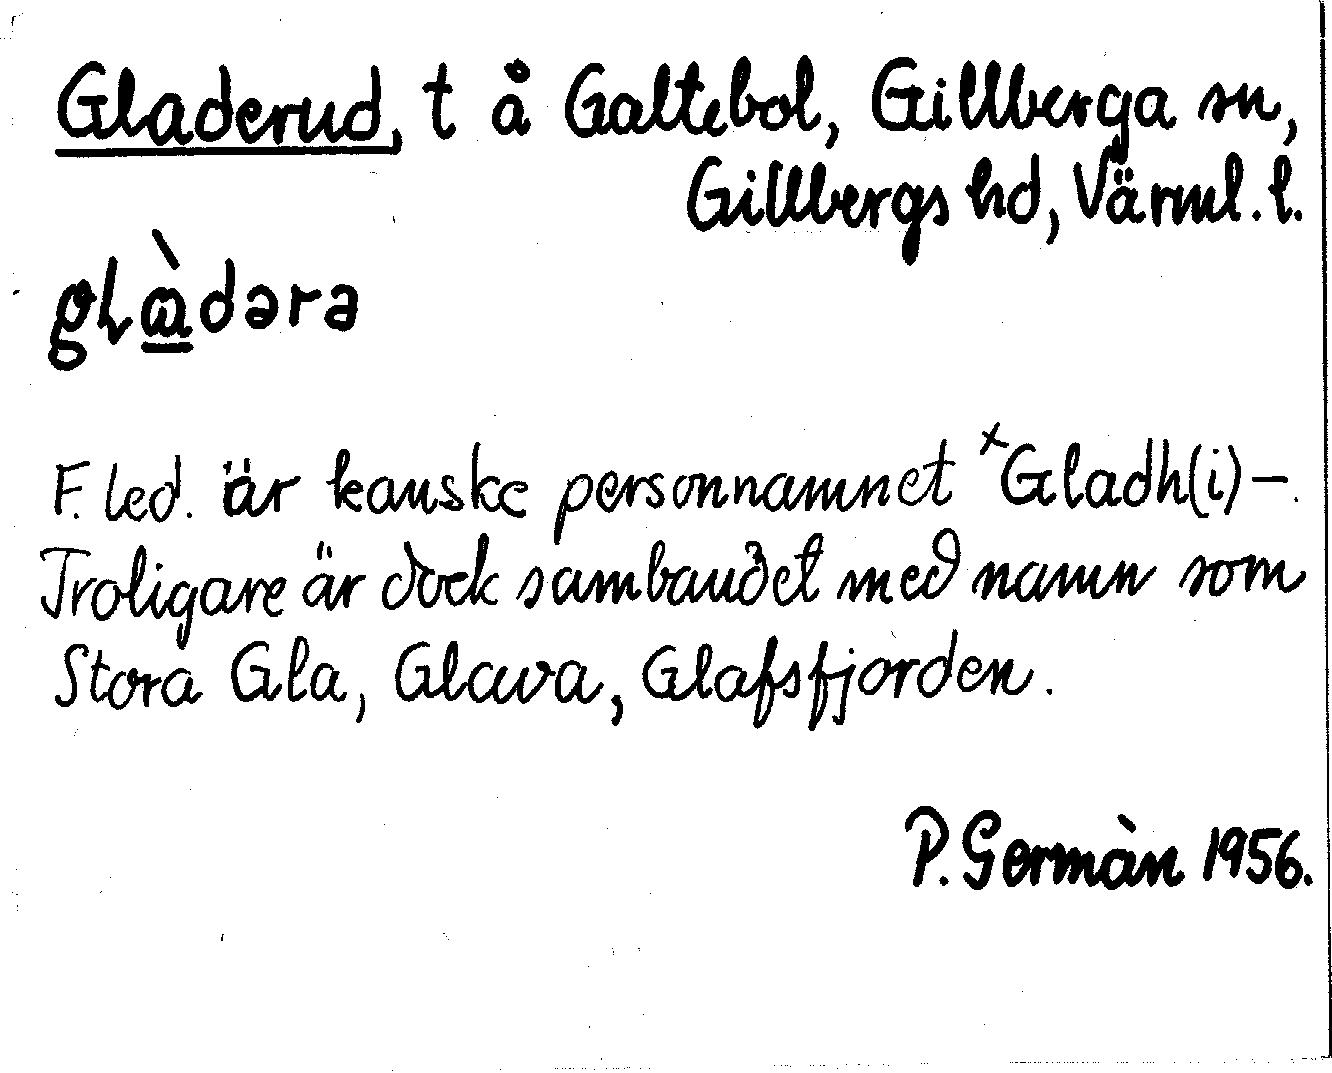 Gladerud, t å Galtebol, Gillberga sn,
Gillbergs hd, Värml. l.
glàdərə
F. led. är kanske personnamnet ˣGladh(i)-.
Troligare är dock sambandet med namn som
Stora Gla, Glava, Glafsfjorden.
P. Germàn 1956.